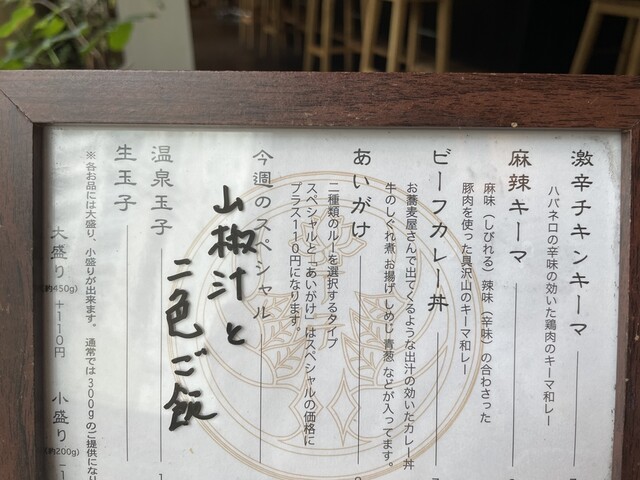 激辛チキンキーマ
ハバネロの辛味の効いた鶏肉のキーマ和レー
麻辣キーマ
麻味（しびれる）辣味（辛味）の合わさった
豚肉を使った具沢山のキーマ和レー
ビーフカレー丼
お蕎麦屋さんで出てくるような出汁の効いたカレー丼
牛のしぐれ煮、お揚げ、しめじ、青葱 などが入ってます。
あいがけ
二種類のルーを選択するタイプ
スペシャルと「あいがけ」はスペシャルの価格に
プラス110円になります。
今週のスペシャル
山椒汁と
二色ご飯
温泉玉子
生玉子
※各お品には大盛り、小盛りが出来ます。 通常では300gのご提供になり
大盛り
(約450g)
+110円
小盛り
(約200g)